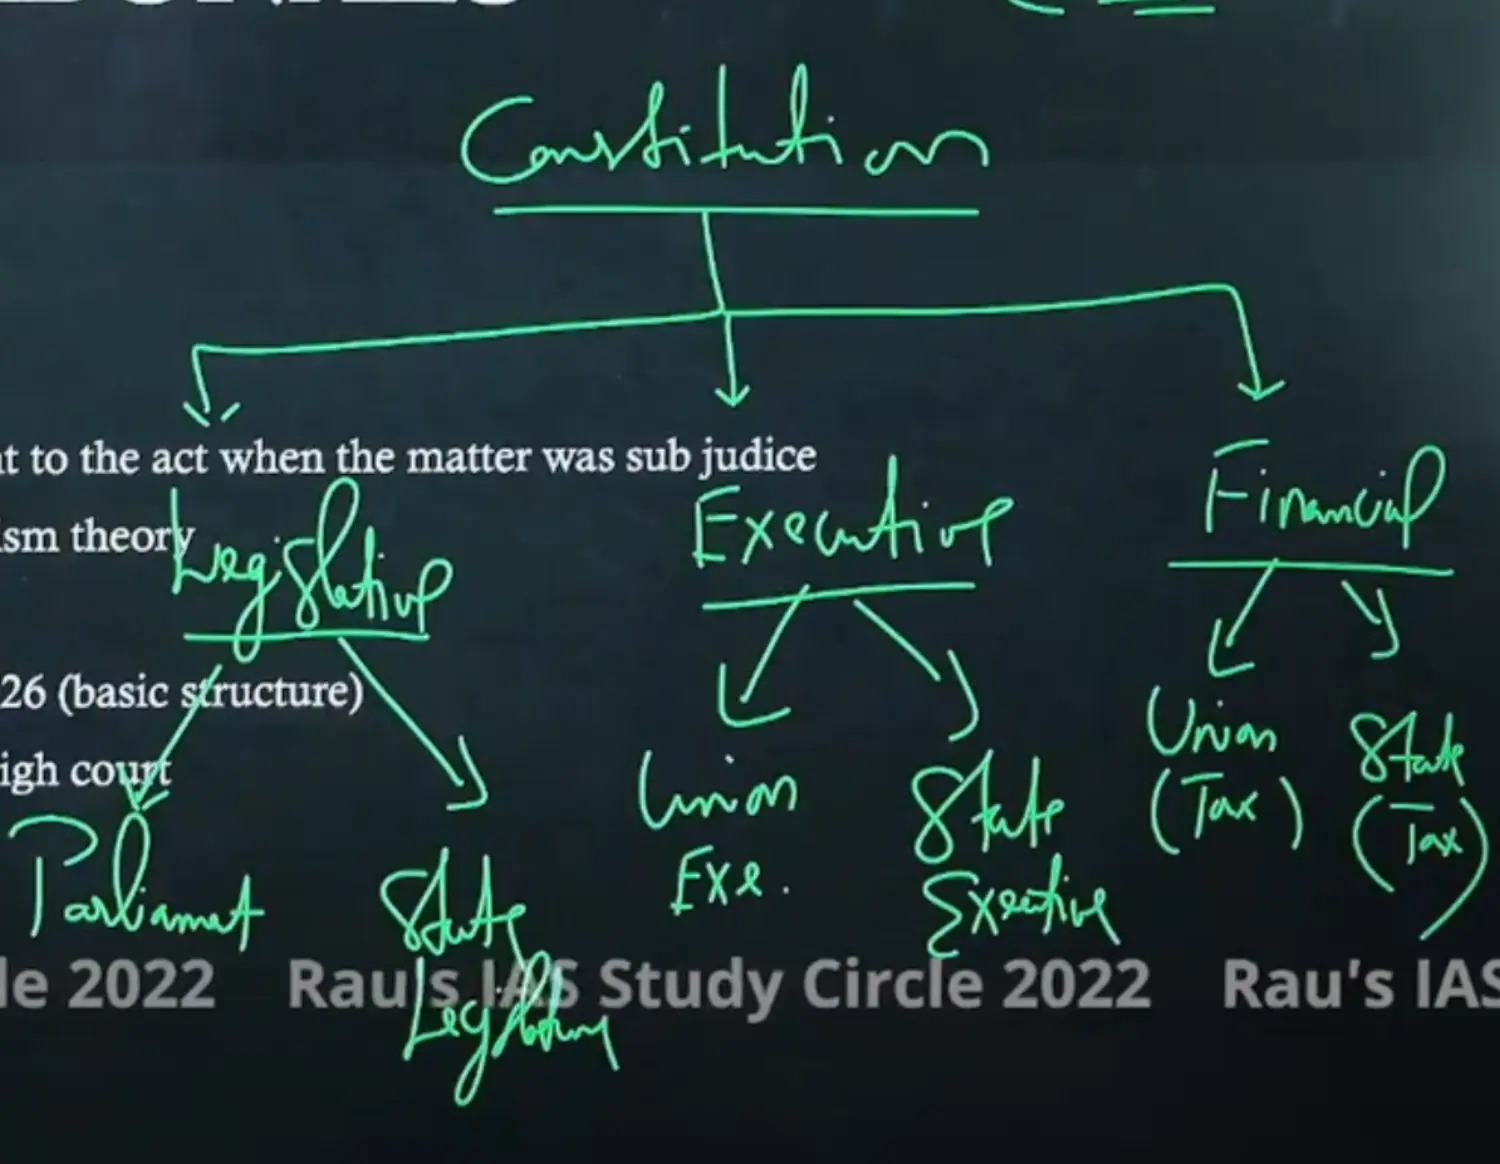 Constitution
t to the act when the matter was sub judice
ism theory
Legislative
Executive
Financial
26 (basic structure)
igh court
Parliament
State
Legislature
Union
Exe.
State
Executive
Union
(Tax)
State
(Tax)
le 2022 Rau's IAS Study Circle 2022 Rau's IAS